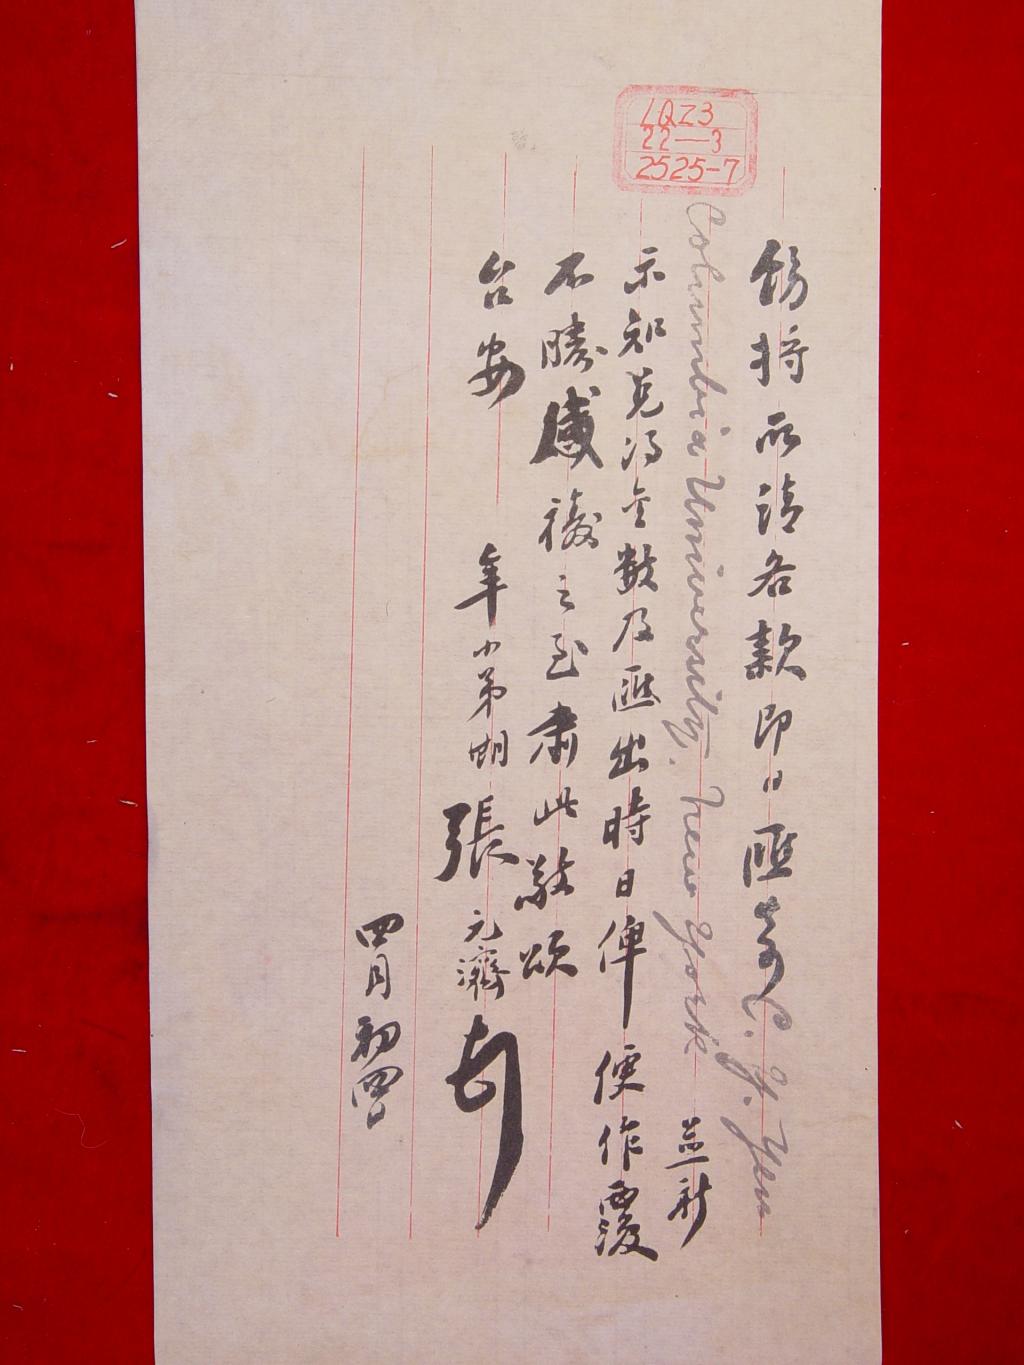 LQZ3
22—3
2525-7
飭將所請各款即日匯寄 C. Y. Yen
Columbia University, New York 並祈
示知兌得金數及匯出時日俾便作覆
不勝感禱之至肅此敬頌
台安 年小弟期張元濟
四月初四日